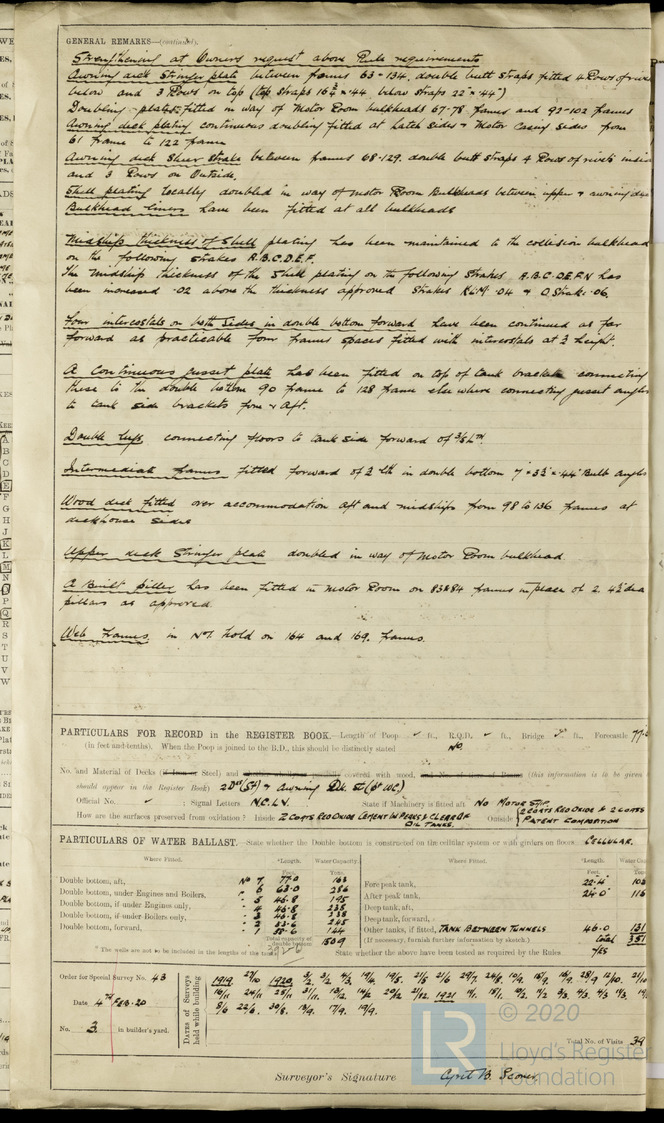 GENERAL REMARKS—(continued).
Strengthening at Owners request above Rule requirements
Awning deck Stringer plate between frames 63-134, double butt straps fitted 4 Rows of rivets
below and 3 Rows on top (top straps × ·44, below straps 22" × ·44")
Doubling plates fitted in way of Motor Room bulkheads 67-78 frames and 92-102 frames
Awning deck plating continuous doubling fitted at hatch sides & Motor Casing sides from
61 frame to 122 frame
Awning deck Sheer strake between frames 68-129, double butt straps 4 Rows of rivets inside
and 3 Rows on Outside.
Shell plating locally doubled in way of Motor Room Bulkheads between upper & awning
Bulkhead liners have been fitted at all bulkheads
Midships thickness of Shell plating has been maintained to the collision bulkhead
on the following strakes A.B.C.D.E.F.
The midship thickness of the Shell plating on the following Strakes A.B.C.D.E.F.N has
been increased ·02 above the thickness approved Strakes K.L.M ·04 & O Strake ·06.
Four intercostals on both sides in double bottom forward have been continued as far
forward as practicable from frames spaces fitted with intercostals at ½ height.
A Continuous gusset plate has been fitted on top of tank bracket connecting
these to the double bottom 90 frame to 128 frame elsewhere connecting gusset angles
to tank side brackets fore & aft.
Double lugs connecting floors to tank side forward of 3/5 Lth.
Intermediate frames fitted forward of in double bottom 7" × 3½" × ·44" Bulb angles
Wood deck fitted over accommodation aft and midships from 98 to 136 frames at
deckhouse sides
Upper deck Stringer plate doubled in way of Motor Room bulkhead.
A Built pillar has been fitted in Motor Room on 83&84 frames in place of 2. 4½" dia
pillars as approved.
Web frames in No 1 hold on 164 and 169. frames.
PARTICULARS FOR RECORD in the REGISTER BOOK.—Length of Poop ✓ ft., R.Q.D. ✓ ft., Bridge ft., Forecastle 77.
(in feet and tenths). When the Poop is joined to the B.D., this should be distinctly stated No.
No. and Material of Decks (if Iron or Steel) and covered with wood, (this information is to be given
should appear in the Register Book) 2 Dks (St) & Awning Dk. St (pt WC)
Official No. ✓ ; Signal Letters N.C.L.V. State if Machinery is fitted aft No MOTOR SHIP
How are the surfaces preserved from oxidation? Inside 2 COATS RED OXIDE CEMENT IN PEAKS & CLEAR OF OIL TANKS. Outside 2 COATS RED OXIDE & 2 COATS PATENT COMPOSITION
PARTICULARS OF WATER BALLAST.—State whether the Double bottom is constructed on the cellular system or with girders on floors CELLULAR.
Where Fitted. *Length. Water Capacity. Where Fitted. *Length. Water
Feet. Tons. Feet. Tons.
Double bottom, aft, No 7 77.0 163
" 6 63.0 286
Double bottom, under Engines and Boilers, " 5 46.8 195
Double bottom, if under Engines only, " 4 46.8 238
Double bottom, if under Boilers only, " 3 46.8 238
" 2 53.6 245
Double bottom, forward, " 1 58.6 144
Total capacity of double bottom 1509
Fore peak tank, 22.4
After peak tank, 24.0
Deep tank, aft,
Deep tank, forward,
Other tanks, if fitted, TANK BETWEEN TUNNELS 46.0 131
(If necessary, furnish further information by sketch.) total 351
* The wells are not to be included in the lengths of the tanks
State whether the above have been tested as required by the Rules
YES
Order for Special Survey No. 43
Date 4th FEB. 20
No. 3 in builder's yard.
Dates of Surveys held while building
1919 27/10 1920 3/2 4/3 19/4 19/5 21/5 21/6 29/7 24/8 10/9 15/9 16/9 28/9 12/10
1921
Total No. of Visits 39
Surveyor's Signature
© 2020
LR
Lloyd's Register
Foundation